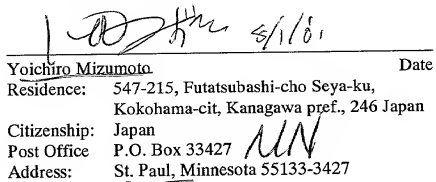 8/1/01
Yoichiro Mizumoto Date
Residence: 547-215, Futatsubashi-cho Seya-ku,
Kokohama-cit, Kanagawa pref., 246 Japan
Citizenship: Japan
Post Office P.O. Box 33427
Address: St. Paul, Minnesota 55133-3427